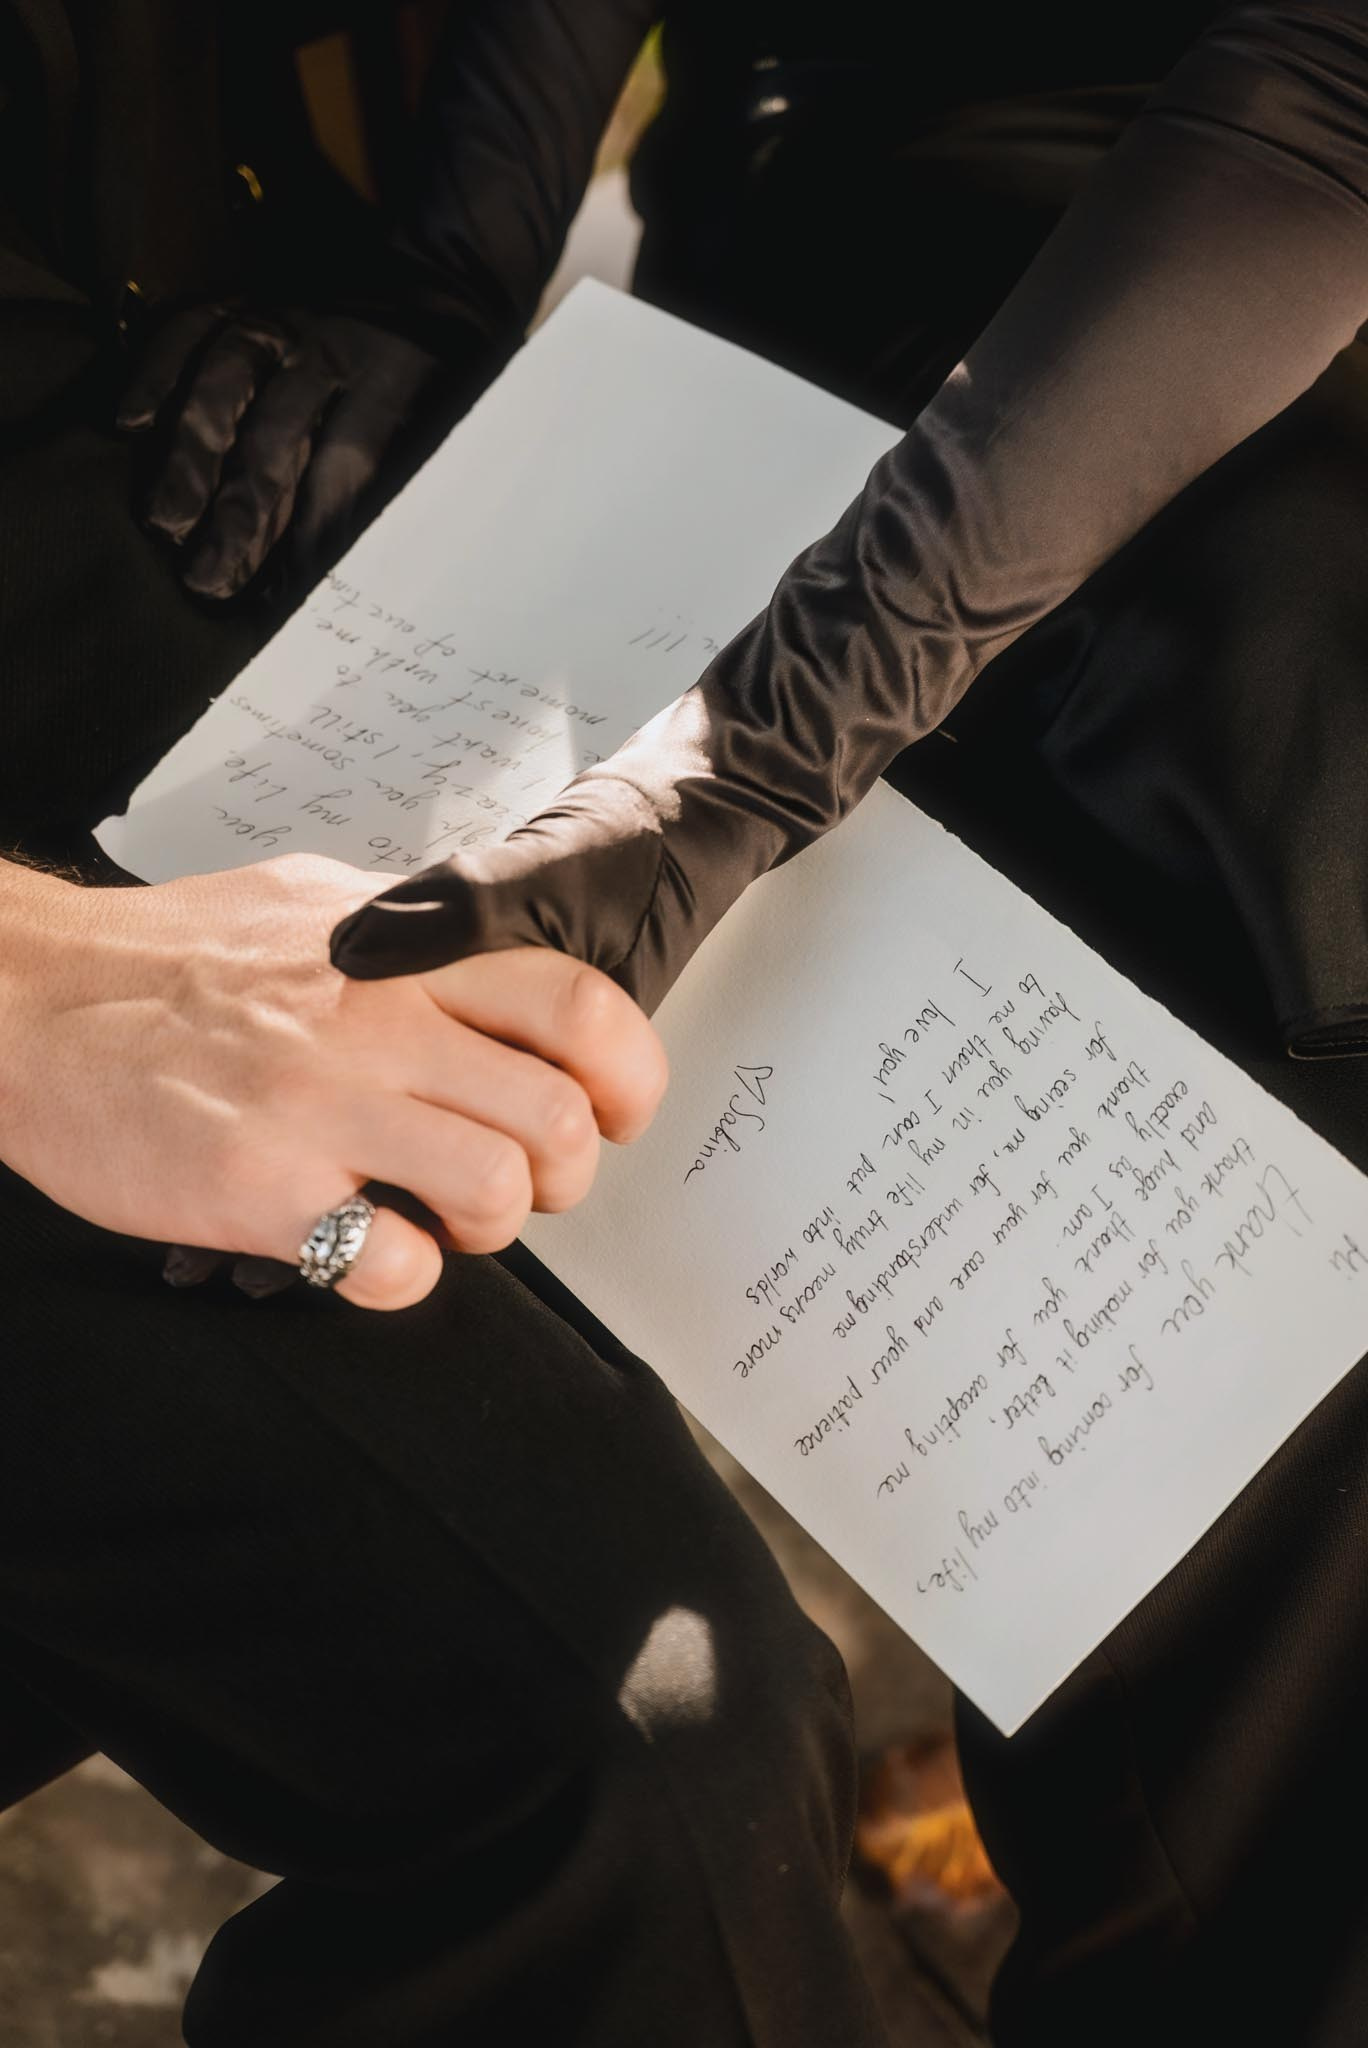 Hi
Thank you for coming into my life,
thank you for making it better,
and huge thank you for accepting me
exactly as I am.
thank you for your care and your patience
for seeing me, for understanding me
having you in my life truly means more
to me than I can put into worlds
I love you!
Sabina
you
to my life
you sometimes
crazy, I still
I want you to
honest with me
moment of our tim
!!!